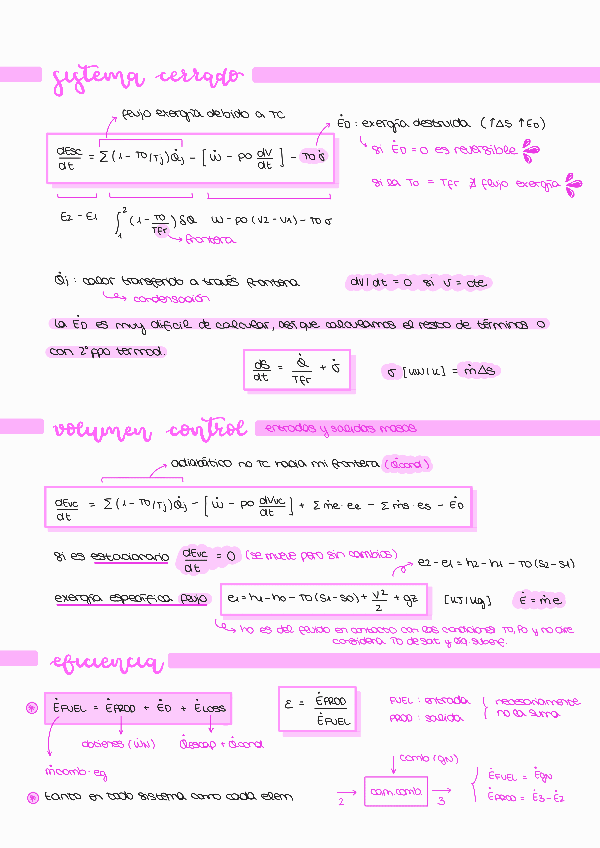 sistema cerrado
flujo exergía debido a TC
ĖD : exergía destruida (↑ΔS ↑ED)
dEsc/dt = Σ(1 - T0/Tj)Q̇j - [Ẇ - p0 dV/dt] - T0 σ̇
si ĖD = 0 es reversible
si la T0 = Tfr ∄ flujo exergía
E2 - E1 ∫₁² (1 - T0/Tfr) δQ W - p0 (V2 - V1) - T0 σ
frontera
Q̇j : calor transferido a través frontera
dV/dt = 0 si V = cte
condensación
la ĖD es muy difícil de calcular, así que calculamos el resto de términos o
con 2º ppo termod.
dS/dt = Q̇/Tfr + σ̇
σ [kW/K] = ṁΔs
volumen control
entradas y salidas masas
adiabático no TC hacia mi frontera (Q̇cond)
dEvc/dt = Σ(1 - T0/Tj)Q̇j - [Ẇ - p0 dVvc/dt] + Σṁe·ee - Σṁs·es - ĖD
si es estacionario dEvc/dt = 0 (se mueve pero sin cambios)
e2 - e1 = h2 - h1 - T0(s2 - s1)
exergía específica flujo e1 = h1 - h0 - T0(s1 - s0) + v²/2 + gz [kJ/kg] Ė = ṁe
h0 es del fluido en contacto con las condiciones T0, P0 y no aire
considera T0 de sat y líq. subenf.
eficiencia
ĖFUEL = ĖPROD + ĖD + ĖLOSS
ε = ĖPROD/ĖFUEL
FUEL : entrada
PROD : salida
necesariamente
no la suma
obtienes (ẆN) Q̇escap + Q̇cond
ṁcomb·eg
comb (gN)
tanto en todo sistema como cada elem
2 cam.comb. 3
ĖFUEL = ĖgN
ĖPROD = Ė3 - Ė2